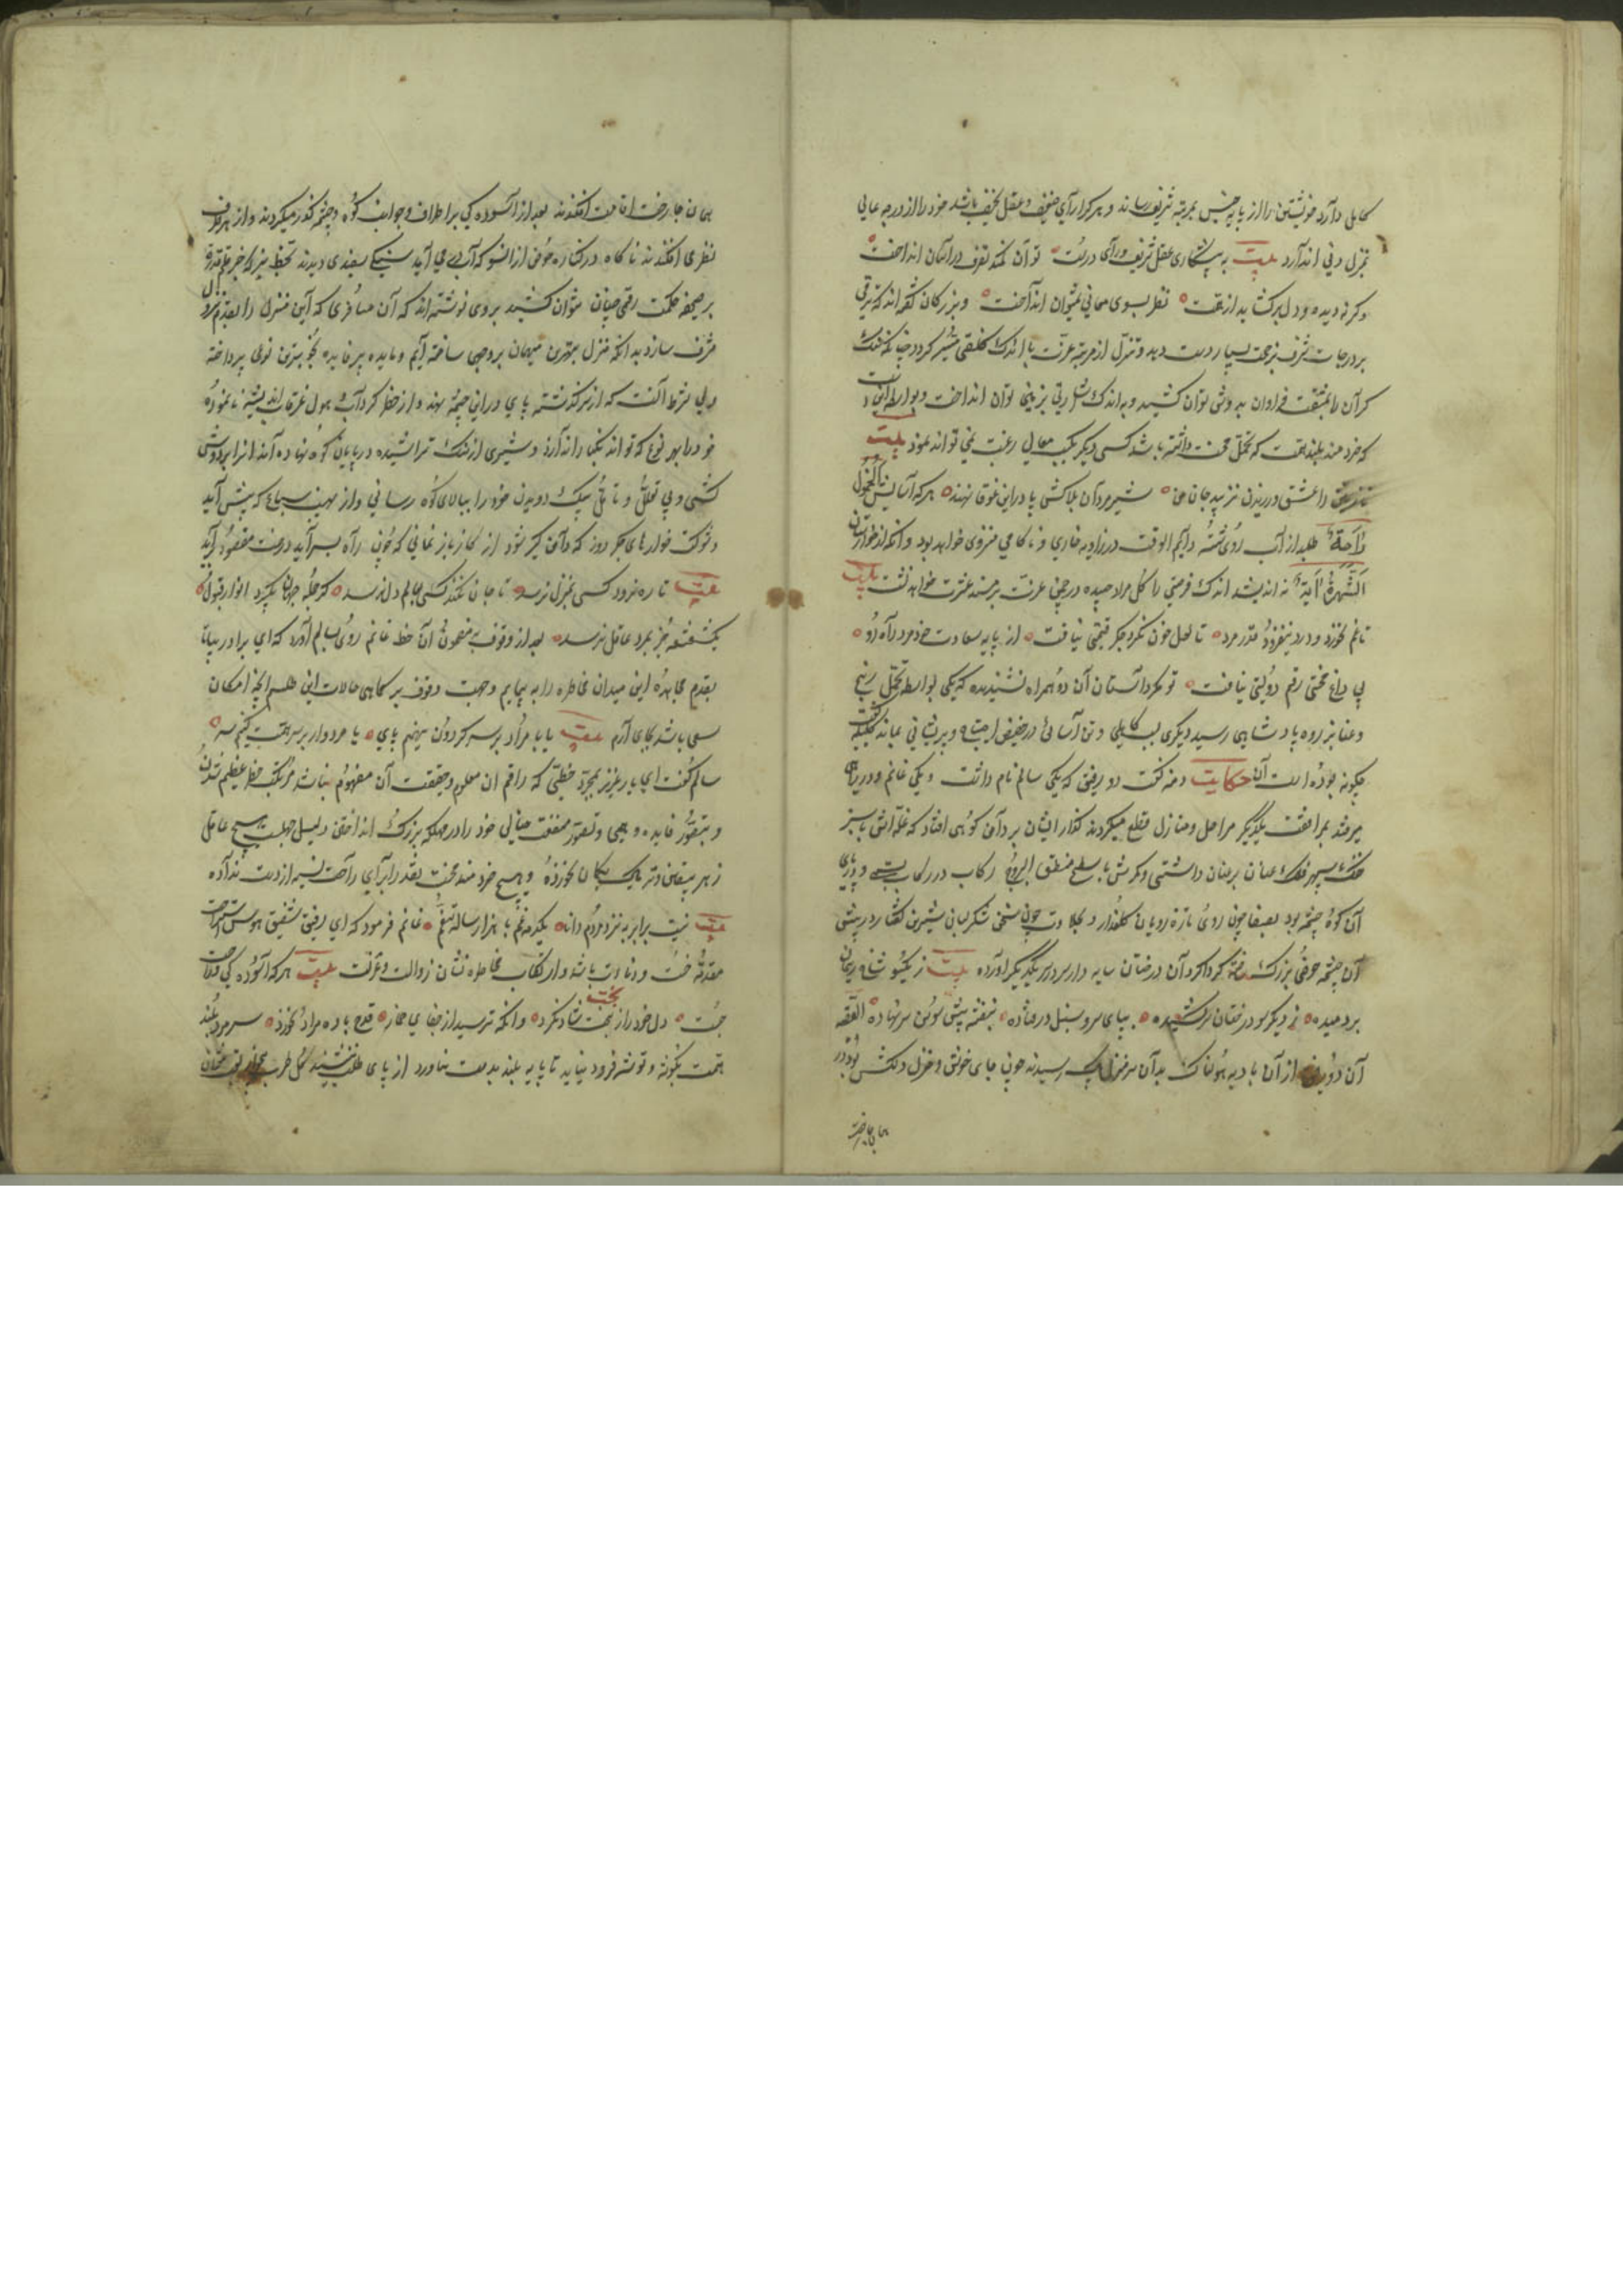 کامل دارد خویشتن را از پایه خسیس بمرتبه شریف رساند و هر کرا رای ضعیف و عقل نحیف باشد خود را از درجه عالی
بمنزل دنی اندازد بیت به پیشکاری عقل شریف و رای درست توان کمند تصرف در آسمان انداخت
و گر نه دیده دل برگشاید از همت نظر بسوی معانی نمیتوان انداخت و بزرگان گفته اند که ترقی
بر درجات شرف بزحمت بسیار دست دهد و تنزل از مرتبه عزت باندک کلفتی میسر گردد چنانکه سنگ
گران را بمشقت فراوان بدوش توان کشید و باندک اشارتی بر زمین توان انداخت و بواسطه این است
که خردمند بلند همت که تحمل محنت داشته باشد کسی دیگر بکسب معالی رغبت نمی تواند نمود بیت
نازنین را عشق ورزیدن نزیبد جان من شیرمردان بلاکش پا درین غوغا نهند هر که آسایش الخمول
راحة طلبد از آب روی شسته دایم الوقت در زاویه خواری و ناکامی منزوی خواهد بود و آنکه از خارستان
الشهرة آفة نه اندیشد اندک فرصتی را گل مراد چیده در چمن عزت بر مسند عشرت خواهد نشست بیت
تا غم نخورد و درد نیفزود قدر مرد تا لعل خون نکرد جگر قیمتی نیافت از پایه سعادت خود مرد راه رو
بی داغ محنتی رقم دولتی نیافت تو مگر داستان آن دو همراه نشنیده که یکی بواسطه تحمل رنج
و عنا بذروه پادشاهی رسید و دیگری بسبب کاهلی و تن آسائی در حضیض احتیاج و پریشانی بماند کلیله گفت
چگونه بوده است آن حکایت دمنه گفت دو رفیق که یکی سالم نام داشت و یکی غانم در راهی
میرفتند بمرافقت یکدیگر مراحل و منازل قطع میکردند گذار ایشان بر دامن کوهی افتاد که قله اش با سبز
خنگ سپهر فلک عنان بر عنان داشتی و کمرش با سطح منطق البروج رکاب در رکاب بستی و در پای
آن کوه چشمه بود بصفا چون روی تازه رویان گلعذار و بحلاوت چون سخن شکر لبان شیرین گفتار در پیش
آن چشمه حوضی بزرگ ساخته گرداگرد آن درختان سایه دار سر در سر یکدیگر آورده بیت ز یکسو شاخ ریحان
بردمیده ز دیگر سو درختان سرکشیده بپای سرو سنبل در فتاده بنفشه پیش سوسن سر نهاده القصه
آن دو رفیق از آن بادیه هولناک بدآن سر منزل پاک رسیدند چون جای خوش و منزل دلکش بود در
همانجا رخت
همان جا رخت اقامت افکندند بعد از آسودگی بر اطراف و جوانب کوه و چشمه گذر میکردند و از هر طرف
نظری افکندند ناگاه در کناره حوض از آنسو که آب می آید سنگی سفید دیدند بخط سبز که جز بقلم قدرت
بر صحیفه حکمت رقمی چنان نتوان کشید بروی نوشته اند که آن مسافری که این منزل را بقدوم نزول
مشرف سازد بدانکه منزل بهتری میهمان بر وجهی ساخته ایم و مایده پر فایده بخوبترین نوعی پرداخته
ولی شرط آنست که از سر گذشته پای درین چشمه نهند و از خطر گرداب و هول غرقاب اندیشه نانموده
خود را بهر نوع که تواند بکنار اندازد و شیری از سنگ تراشیده در پایان کوه نهاده اند آنرا بر دوش
کشی و بی تعلل و تامل بیک دویدن خود را ببالای کوه رسانی و از مهیب سباع که پیش آید
و شوکت خوارهای جگر دوز که دامن گیر شود از کار باز نمانی که چون راه بسر آید درخت مقصود بر آید
بیت تا ره نرود کسی بمنزل نرسد تا جان نکند کسی بعالم دل نرسد گر جمله جهان بگیرد انوار قبول
یک شعشعه جز بمرد عاقل نرسد بعد از وقوف بمضمون آن خط غانم روی بسالم آورد که ای برادر بیا تا
بقدم مجاهده این میدان مخاطره را به پیمایم و جهت وقوف بر کماهی حالات این طلسم آنچه امکان
سعی باشد بجای آرم بیت یا با مراد بر سر گردون نهیم پای یا مردوار بر سر همت کنیم سر
سالم گفت ای یار عزیز بمجرد خطی که راقم آن معلوم و حقیقت آن مفهوم نباشد مرتکب خطر عظیم شدن
و بتصور فایده وهمی و تصور منفعت خیالی خود را در مهلکه بزرگ انداختن دلیل جهلست هیچ عاقل
زهر بیقین و تریاک بگمان نخورده و هیچ خردمند محنت نقد را برای راحت نسیه از دست نداده
بیت نیست برابر بنزد مردم دانا یکدمه غم با هزار ساله تنعم غانم فرمود که ای رفیق شفیق هوس استراحت
مقدمه خست و دنائت باشد و ارتکاب مخاطره نشان دولت و عزت بیت هر که آسودگی و راحت
جست دل خود را ز بخت شاد نکرد وانکه ترسید از جفای خمار قدح باده مراد نخورد سر مرد بلند
همت بگوشه و توشه فرود نیاید تا پایه بلند بدست نیاورد از پای طلب ننشیند گل طرب بی خار تعب نتوان